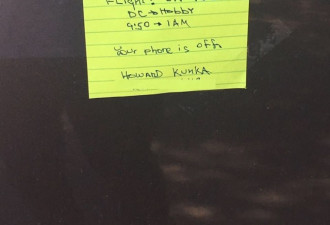 Flight:
DC → Hobby
9:50 → 1AM
Your phone is off.
HOWARD KUHKA